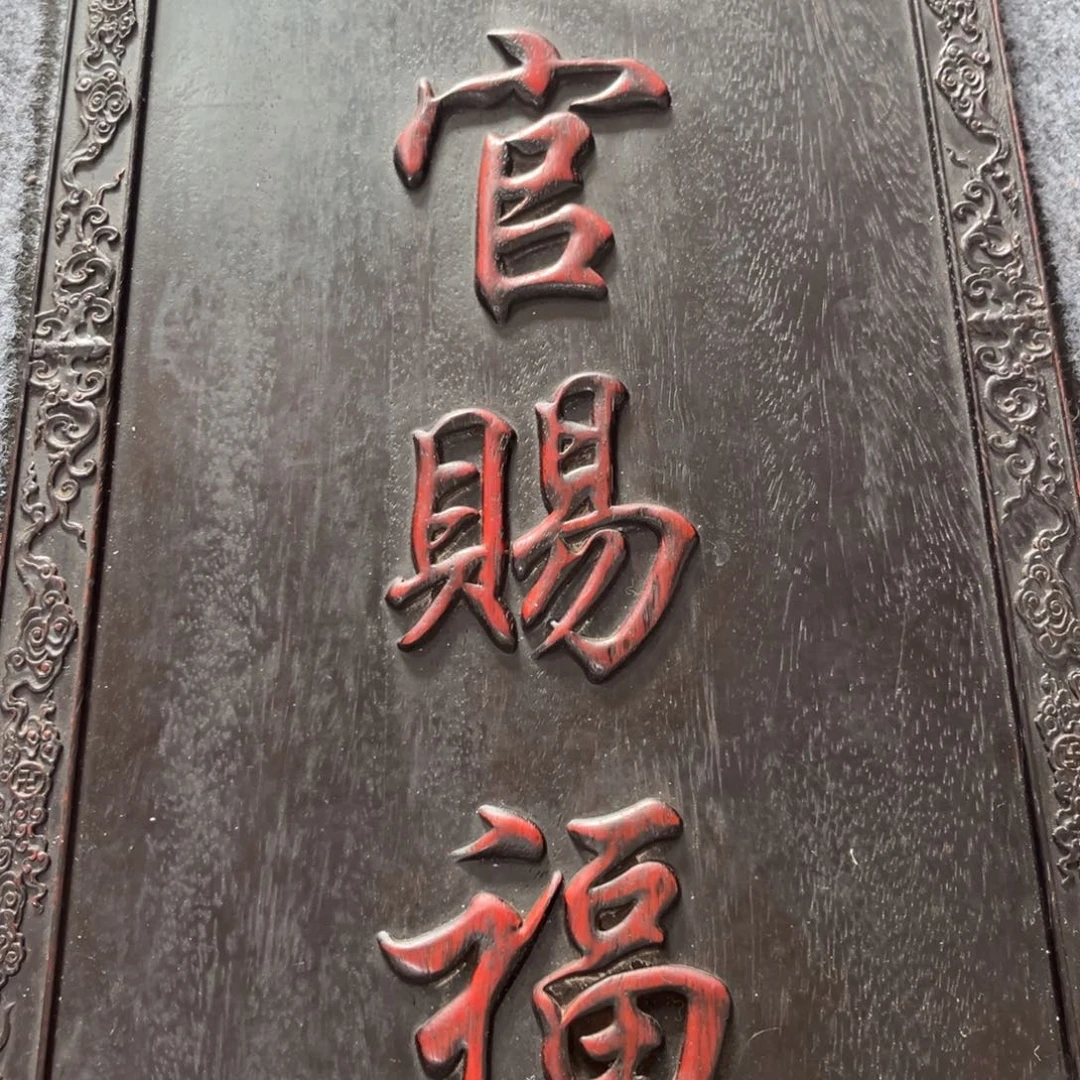 官賜福